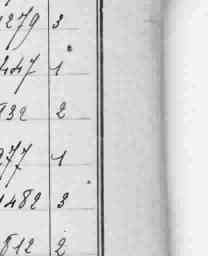 1279 3
447 1
932 2
277 1
1482 3
812 2